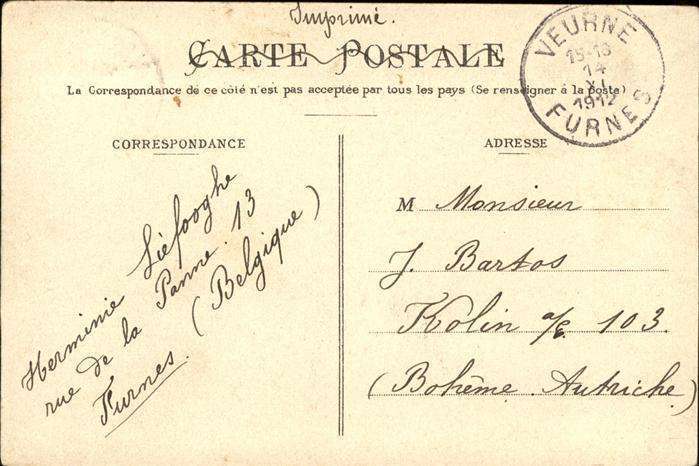 Imprimé.
CARTE POSTALE
La Correspondance de ce côté n'est pas acceptée par tous les pays (Se renseigner à la poste)
VEURNE
15-16
14
XI
1912
FURNES
CORRESPONDANCE
Herminie Liefooghe
rue de la Panne. 13
Furnes. (Belgique)
ADRESSE
M Monsieur
J. Bartos
Kolin a/E. 103.
(Bohême. Autriche)